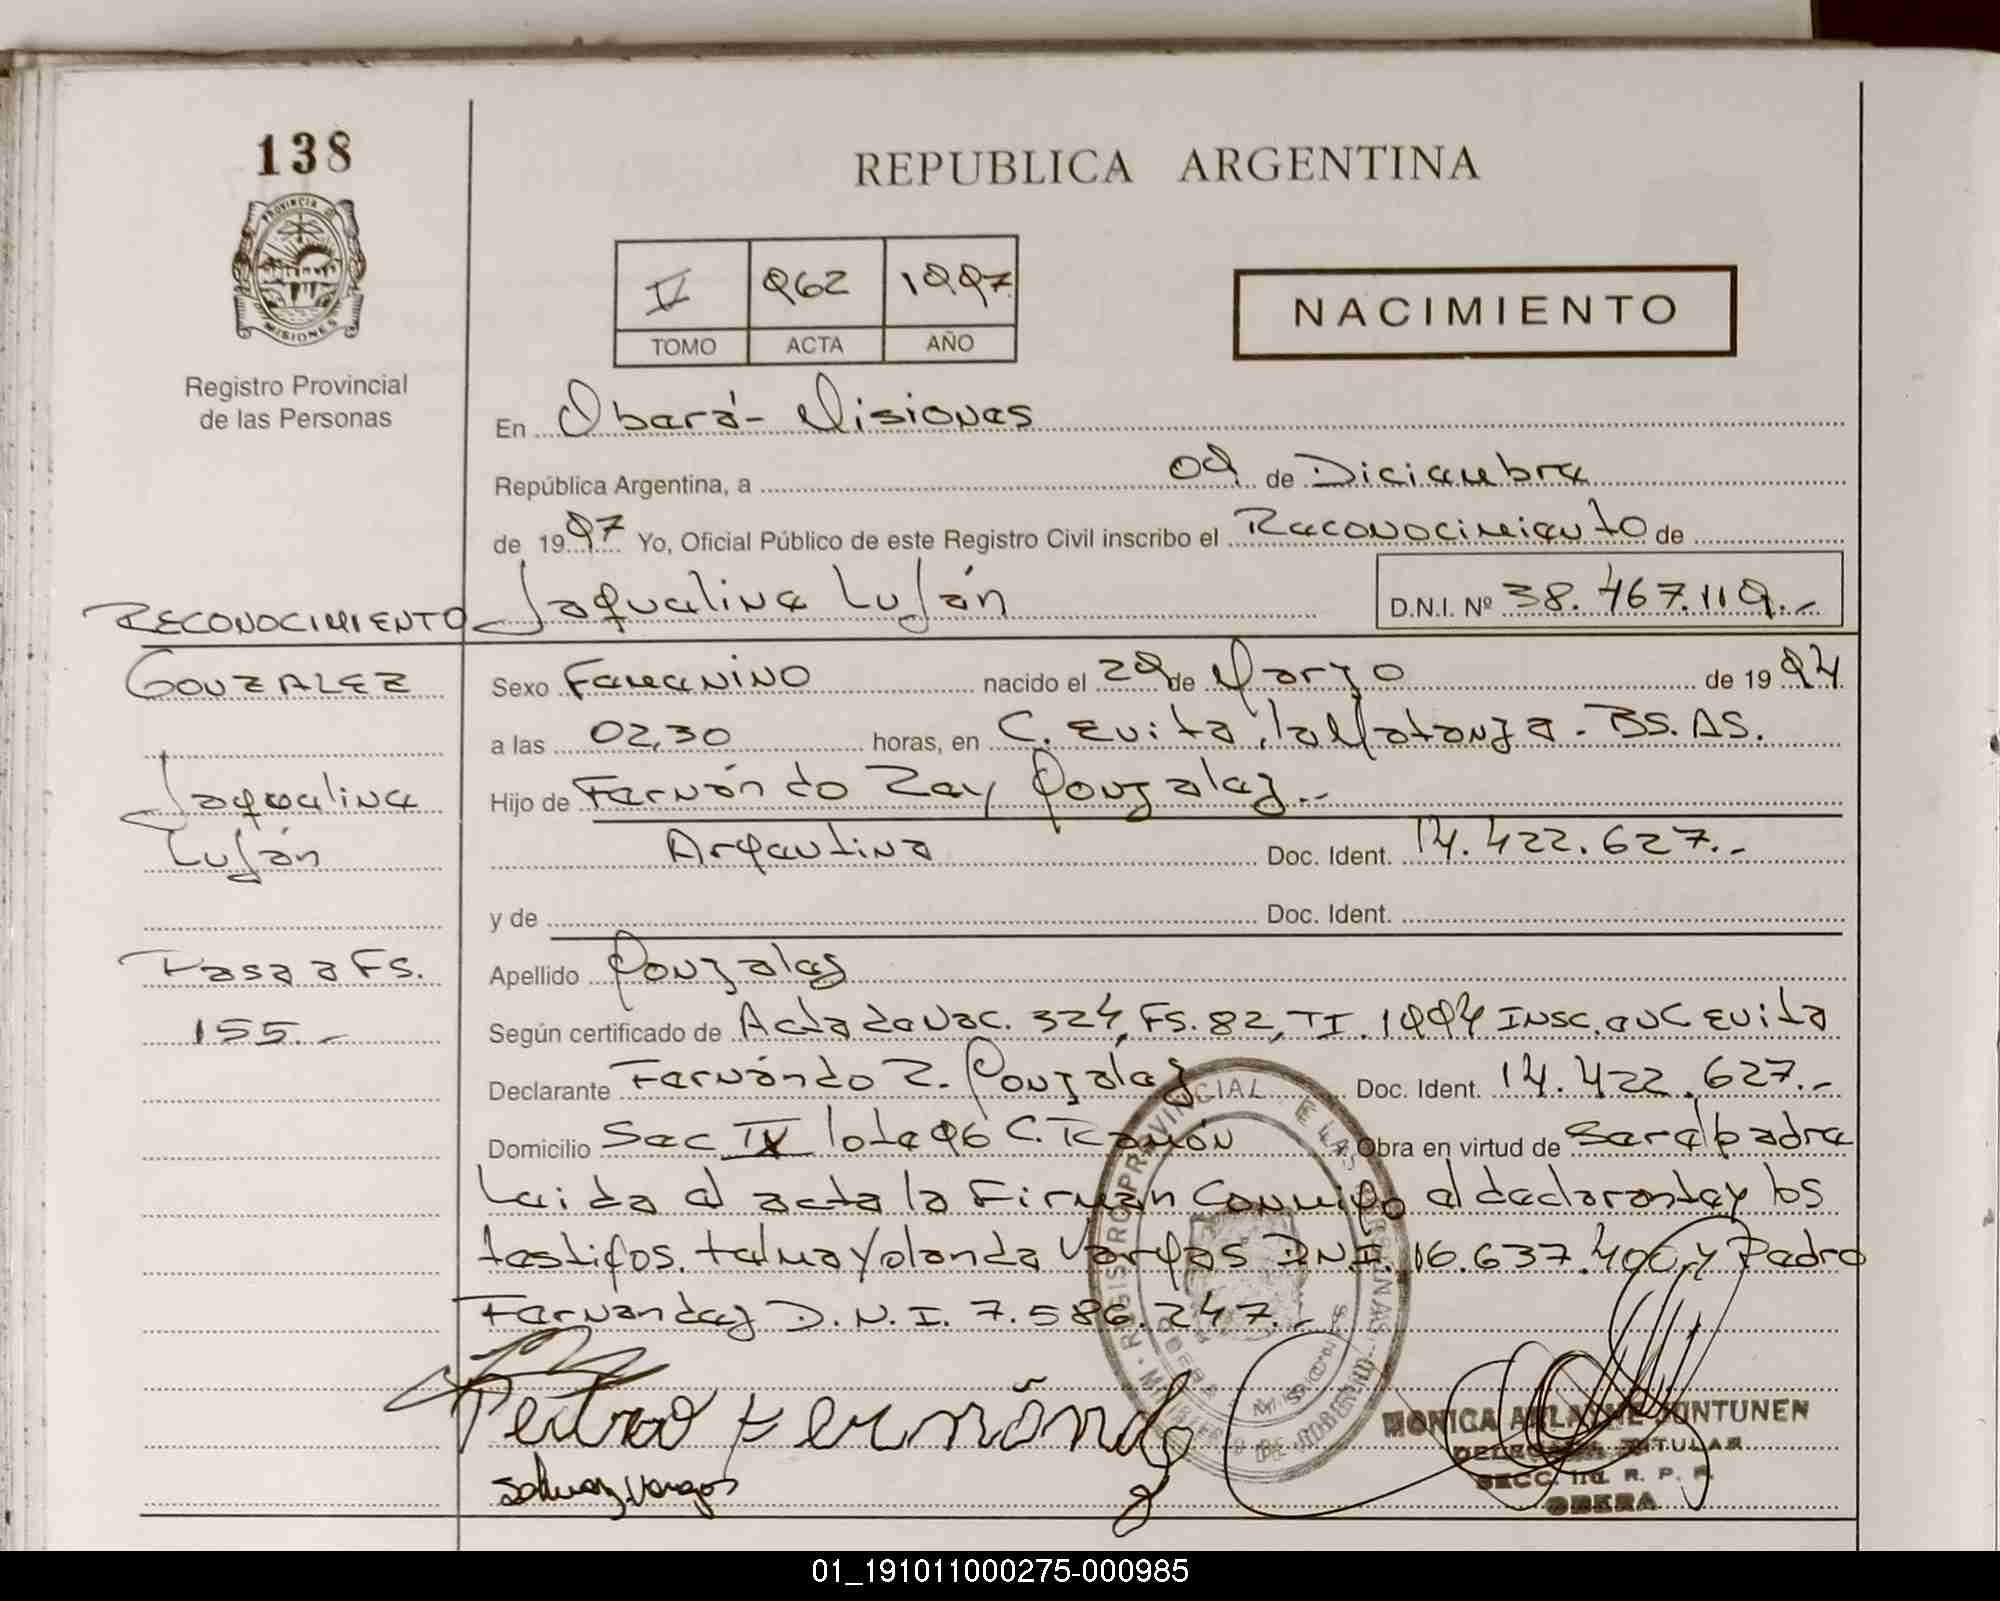 138
PROVINCIA DE
MISIONES
Registro Provincial
de las Personas
REPUBLICA ARGENTINA
V 962 1997
TOMO ACTA AÑO
NACIMIENTO
En Oberá - Misiones
República Argentina, a 09 de Diciembre
de 1997 Yo, Oficial Público de este Registro Civil inscribo el Reconocimiento de
RECONOCIMIENTO Jaquelina Luján D.N.I. Nº 38.467.119.-
GONZALEZ Sexo Femenino nacido el 29 de Marzo de 1994
a las 02,30 horas, en C. Evita, la Matanza - BS. AS.
Jaquelina Hijo de Fernándo Rey Gonzalez.-
Luján Argentina Doc. Ident. 14.422.627.-
y de Doc. Ident.
Pasa a Fs. Apellido Gonzalez
155.- Según certificado de Acta de Nac. 324, Fs. 82, T I. 1994 Insc. en C Evita
Declarante Fernándo R. Gonzaléz Doc. Ident. 14.422.627.-
Domicilio Sec IX lote 96 C. Ramón Obra en virtud de ser el padre
Leida el acta la Firmán Conmigo el declarante y los
testigos. Yolanda Vargas DNI. 16.637.400 y Pedro
Fernandez D.N.I. 7.586.247.-
REGISTRO PROVINCIAL DE LAS PERSONAS
OBERA MISIONES
MINISTERIO DE GOBIERNO
Pedro Fernández
Vargas
MONICA JUNTUNEN
DELEGADA TITULAR
SECC. 1ra. R. P. P.
OBERA
01_191011000275-000985